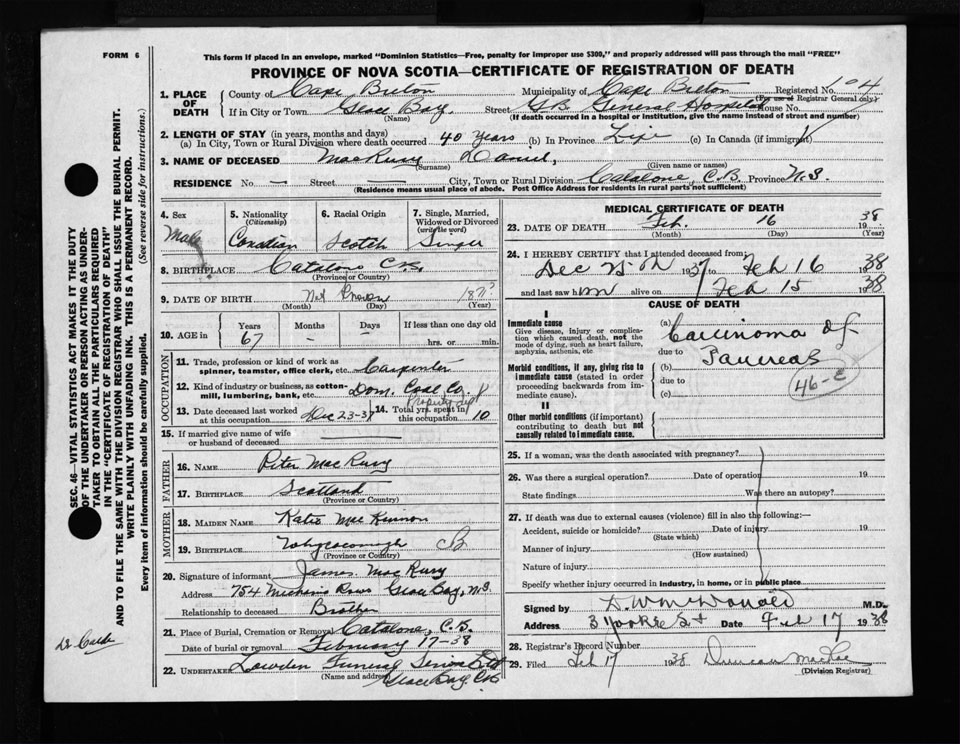 FORM 6
This form if placed in an envelope, marked "Dominion Statistics—Free, penalty for improper use $300," and properly addressed will pass through the mail "FREE"
PROVINCE OF NOVA SCOTIA—CERTIFICATE OF REGISTRATION OF DEATH
1. PLACE OF DEATH County of Cape Breton Municipality of Cape Breton Registered No. 104
(For use of Registrar General only)
If in City or Town Glace Bay. Street G.B. General Hospital House No.
(Name) (If death occurred in a hospital or institution, give the name instead of street and number)
2. LENGTH OF STAY (in years, months and days)
(a) In City, Town or Rural Division where death occurred 40 years (b) In Province Life (c) In Canada (if immigrant)
3. NAME OF DECEASED MacRury Daniel,
(Surname) (Given name or names)
RESIDENCE No. — Street — City, Town or Rural Division Catalone, C.B. Province N.S.
(Residence means usual place of abode. Post Office Address for residents in rural parts not sufficient)
4. Sex Male
5. Nationality (Citizenship) Canadian
6. Racial Origin Scotch
7. Single, Married, Widowed or Divorced (write the word) Single
8. BIRTHPLACE Catalone C.B.
(Province or Country)
9. DATE OF BIRTH Not Known 187
(Month) (Day) (Year)
10. AGE in Years Months Days If less than one day
67 — — hrs. or min.
OCCUPATION
11. Trade, profession or kind of work as spinner, teamster, office clerk, etc. Carpenter
12. Kind of industry or business, as cotton-mill, lumbering, bank, etc. Dom. Coal Co.
13. Date deceased last worked at this occupation Dec 23-37
14. Total yrs. spent in this occupation 10
15. If married give name of wife or husband of deceased
FATHER
16. NAME Peter MacRury
17. BIRTHPLACE Scotland
(Province or Country)
MOTHER
18. MAIDEN NAME Katie MacKinnon
19. BIRTHPLACE Whycocomagh CB
(Province or Country)
20. Signature of informant James MacRury
Address 754 Rows Glace Bay, N.S.
Relationship to deceased Brother
21. Place of Burial, Cremation or Removal Catalone, C.B.
Date of burial or removal February 17-38
22. UNDERTAKER Funeral Service Ltd
(Name and address) Glace Bay, C.B.
MEDICAL CERTIFICATE OF DEATH
23. DATE OF DEATH Feb. 16 1938
(Month) (Day) (Year)
24. I HEREBY CERTIFY that I attended deceased from:
Dec 25th 1937 to Feb 16 1938
and last saw him alive on Feb 15 1938
CAUSE OF DEATH
I
Immediate cause
Give disease, injury or complication which caused death, not the mode of dying, such as heart failure, asphyxia, asthenia, etc
(a) Carcinoma of
due to Pancreas
Morbid conditions, if any, giving rise to immediate cause (stated in order proceeding backwards from immediate cause).
(b)
due to
(c)
46-c
II
Other morbid conditions (if important) contributing to death but not causally related to immediate cause.
25. If a woman, was the death associated with pregnancy?
26. Was there a surgical operation? Date of operation 19
State findings Was there an autopsy?
27. If death was due to external causes (violence) fill in also the following:—
Accident, suicide or homicide? Date of injury 19
(State which)
Manner of injury
(How sustained)
Nature of injury
Specify whether injury occurred in industry, in home, or in public place
Signed by D. W. McDonald M.D.
Address 3 Yorke St Date Feb 17 1938
28. Registrar's Record Number
29. Filed Feb 17 1938 Duncan
(Division Registrar)
SEC. 46—VITAL STATISTICS ACT MAKES IT THE DUTY
OF THE UNDERTAKER OR PERSON ACTING AS UNDER-
TAKER TO OBTAIN ALL THE PARTICULARS REQUIRED
IN THE "CERTIFICATE OF REGISTRATION OF DEATH"
AND TO FILE THE SAME WITH THE DIVISION REGISTRAR WHO SHALL ISSUE THE BURIAL PERMIT.
WRITE PLAINLY WITH UNFADING INK. THIS IS A PERMANENT RECORD.
Every item of information should be carefully supplied. (See reverse side for instructions.)